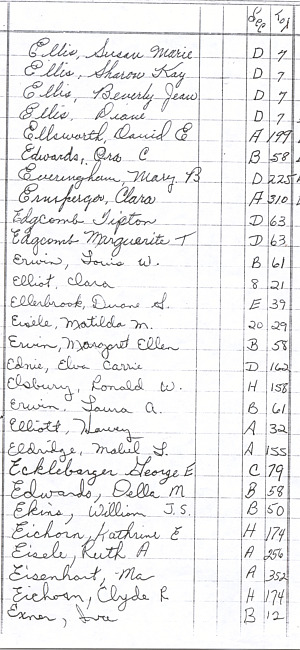 Sec Lot
Ellis, Susan Marie D 7
Ellis, Sharon Kay D 7
Ellis, Beverly Jean D 7
Ellis, Diane D 7
Ellsworth, Daniel E A 199
Edwards, Ora C B 58
Everingham, Mary B D 225
Ernsperger, Clara A 310
Edgcomb Tipton D 63
Edgcomb Merguerite T D 63
Erwin, Louis W. B 61
Elliot, Clara 8 21
Ellerbrook, Duane S. E 39
Eisele, Matilda M. 20 29
Erwin, Margaret Ellen B 58
Ednie, Elva Carrie D 162
Elsbury, Ronald W. H 158
Erwin, Laura A. B 61
Elliott, Harvey A 32
Eldridge, Mabel L. A 155
Ecklebarger George E C 79
Edwards, Della M B 58
Ekins, William J.S. B 50
Eichorn, Kathrine E H 174
Eisele, Ruth A A 256
Eisenhart, Ma A 352
Eichorn, Clyde R H 174
Exner, Ira B 12